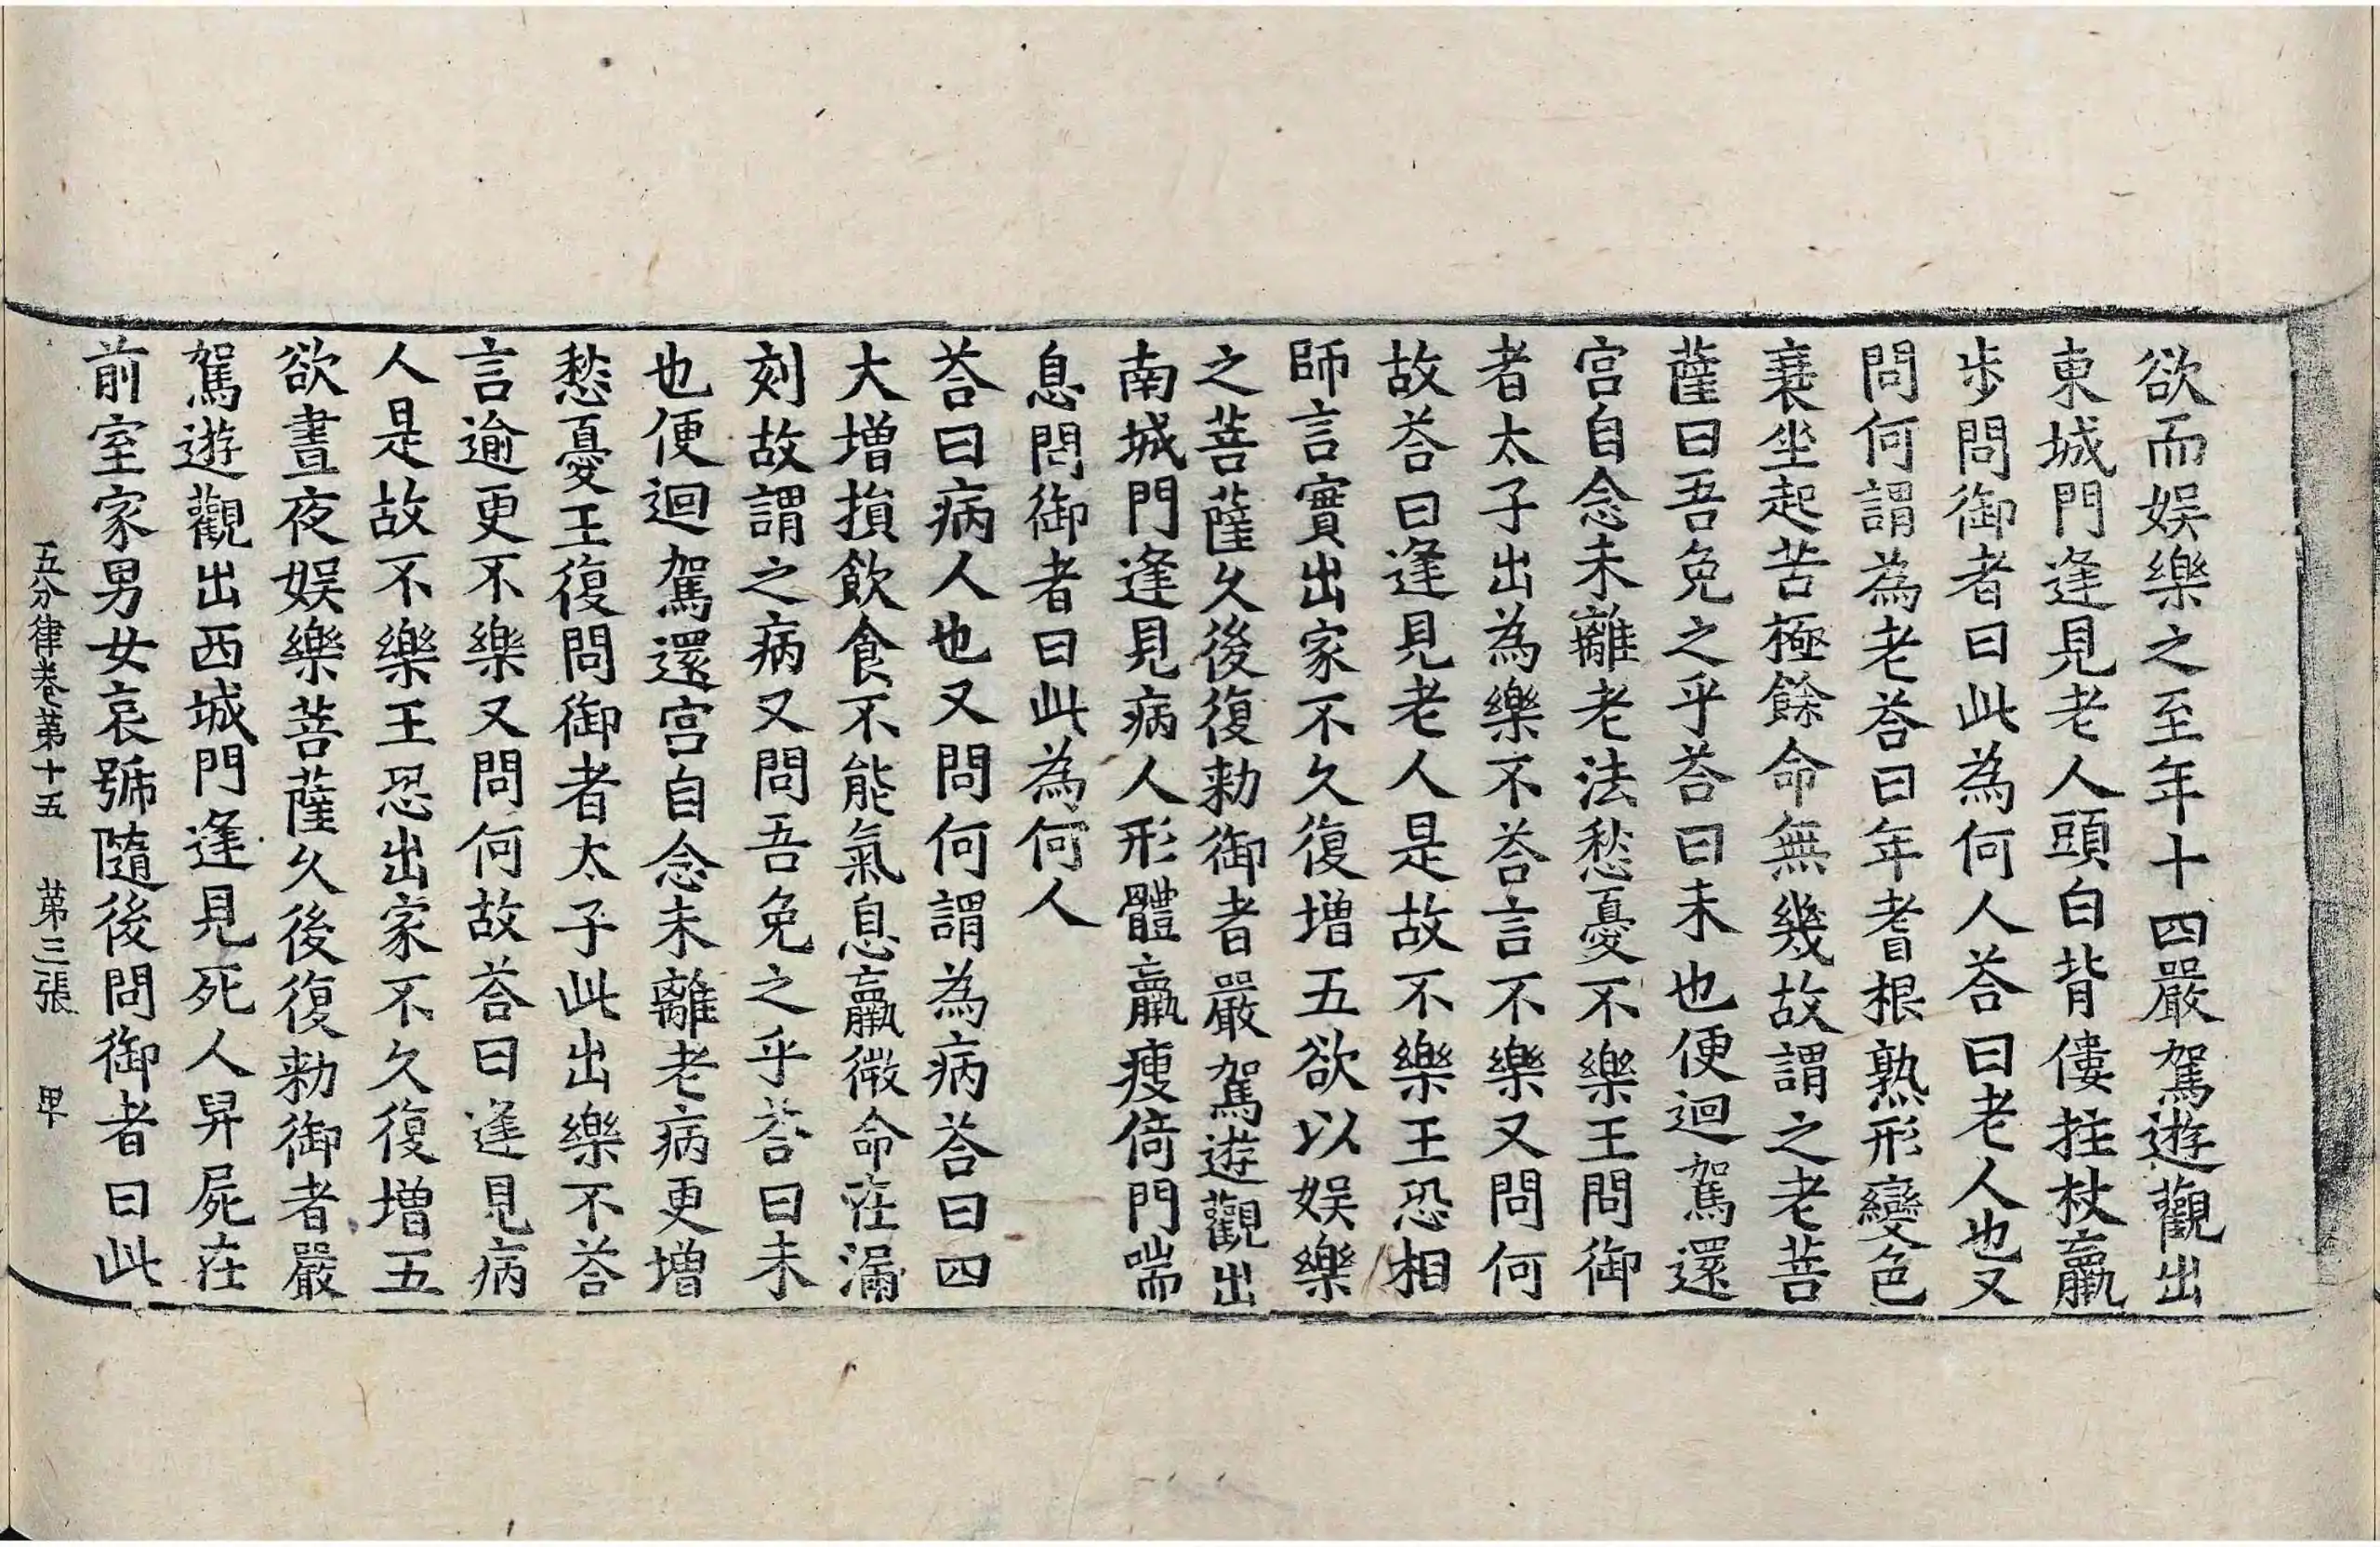 欲而娯樂之至年十四嚴駕遊觀出
東城門逢見老人頭白背僂拄杖羸
步問御者曰此為何人荅曰老人也又
問何謂為老荅曰年耆根熟形變色
衰坐起苦極餘命無幾故謂之老菩
薩曰吾免之乎荅曰未也便迴駕還
宮自念未離老法愁憂不樂王問御
者太子出為樂不荅言不樂又問何
故荅曰逢見老人是故不樂王恐相
師言實出家不久復增五欲以娯樂
之菩薩久後復勑御者嚴駕遊觀出
南城門逢見病人形體羸瘦倚門喘
息問御者曰此為何人
荅曰病人也又問何謂為病荅曰四
大增損飲食不能氣息羸微命在漏
刻故謂之病又問吾免之乎荅曰未
也便迴駕還宮自念未離老病更增
愁憂王復問御者太子此出樂不荅
言逾更不樂又問何故荅曰逢見病
人是故不樂王恐出家不久復增五
欲晝夜娯樂菩薩久後復勑御者嚴
駕遊觀出西城門逢見死人舁屍在
前室家男女哀號隨後問御者曰此
五分律卷第十五 第三張 甲